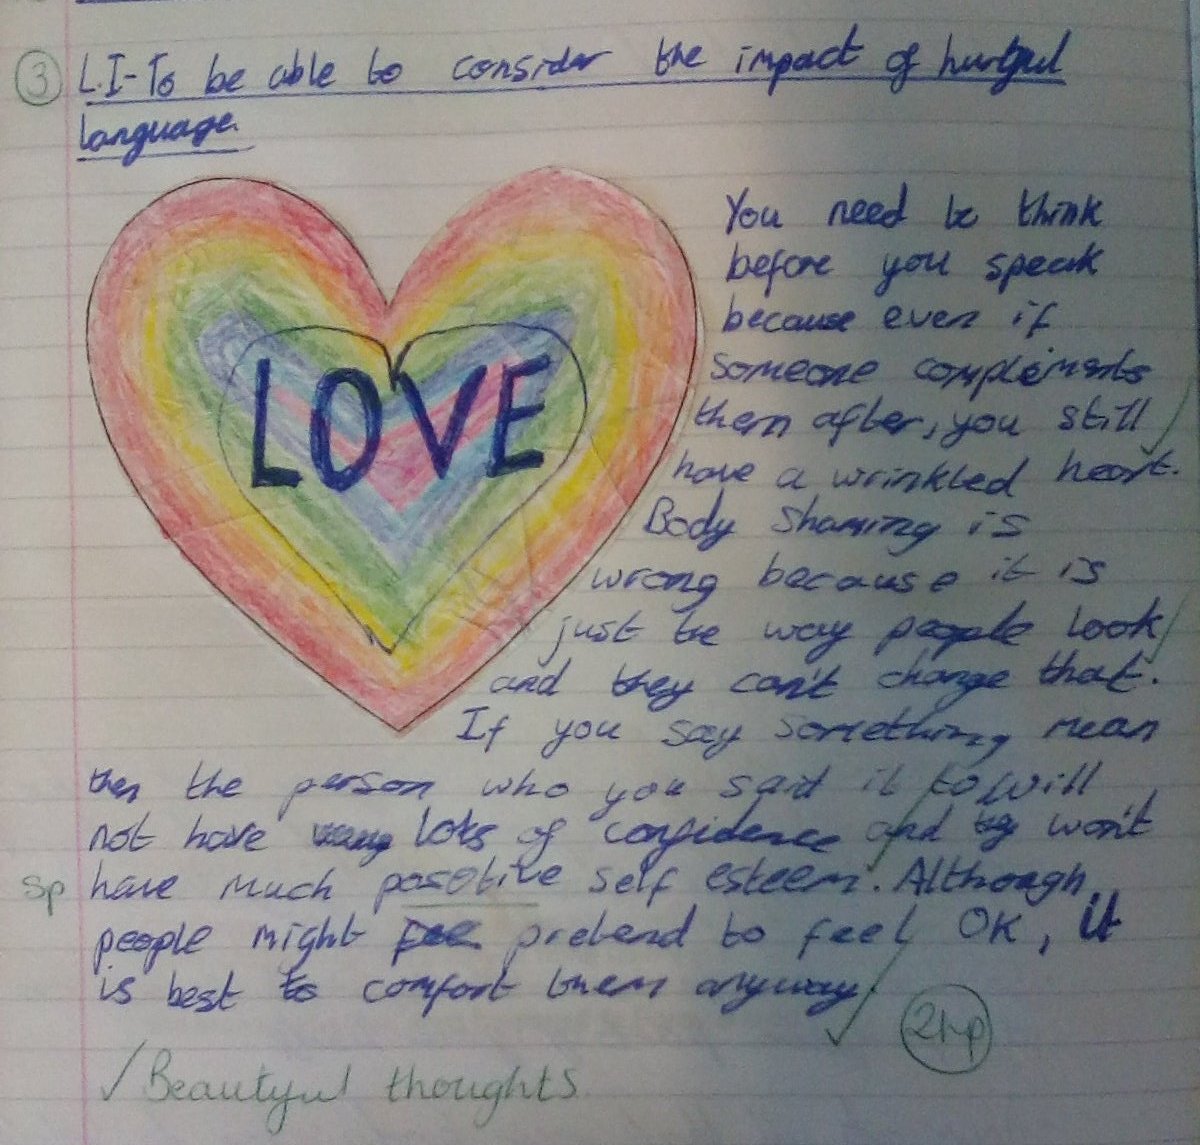 3 L.I-To be able to consider the impact of hurtful
language.
LOVE
You need to think
before you speak
because even if
someone complements
them after, you still
have a wrinkled heart.
Body shaming is
wrong because it is
just the way people look
and they can't change that.
If you say something mean
then the person who you said it to will
not have lots of confidence and won't
Sp have much posotive self esteem. Although
people might pretend to feel OK, it
is best to comfort them anyway.
2hp
Beautiful thoughts.